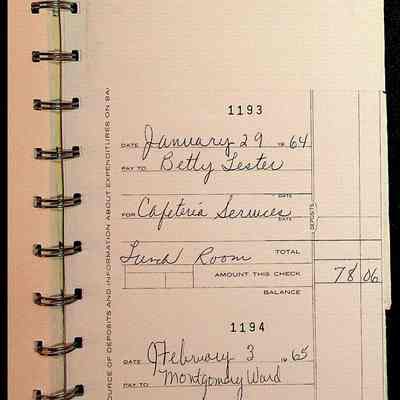 1193
DATE January 29 1964
PAY TO Betty Lester
DATE
FOR Cafeteria Services
DATE
Lunch Room TOTAL
AMOUNT THIS CHECK 78 06
BALANCE
1194
DATE February 3 1965
PAY TO Montgomery Ward
DEPOSITS
OURCE OF DEPOSITS AND INFORMATION ABOUT EXPENDITURES ON BA